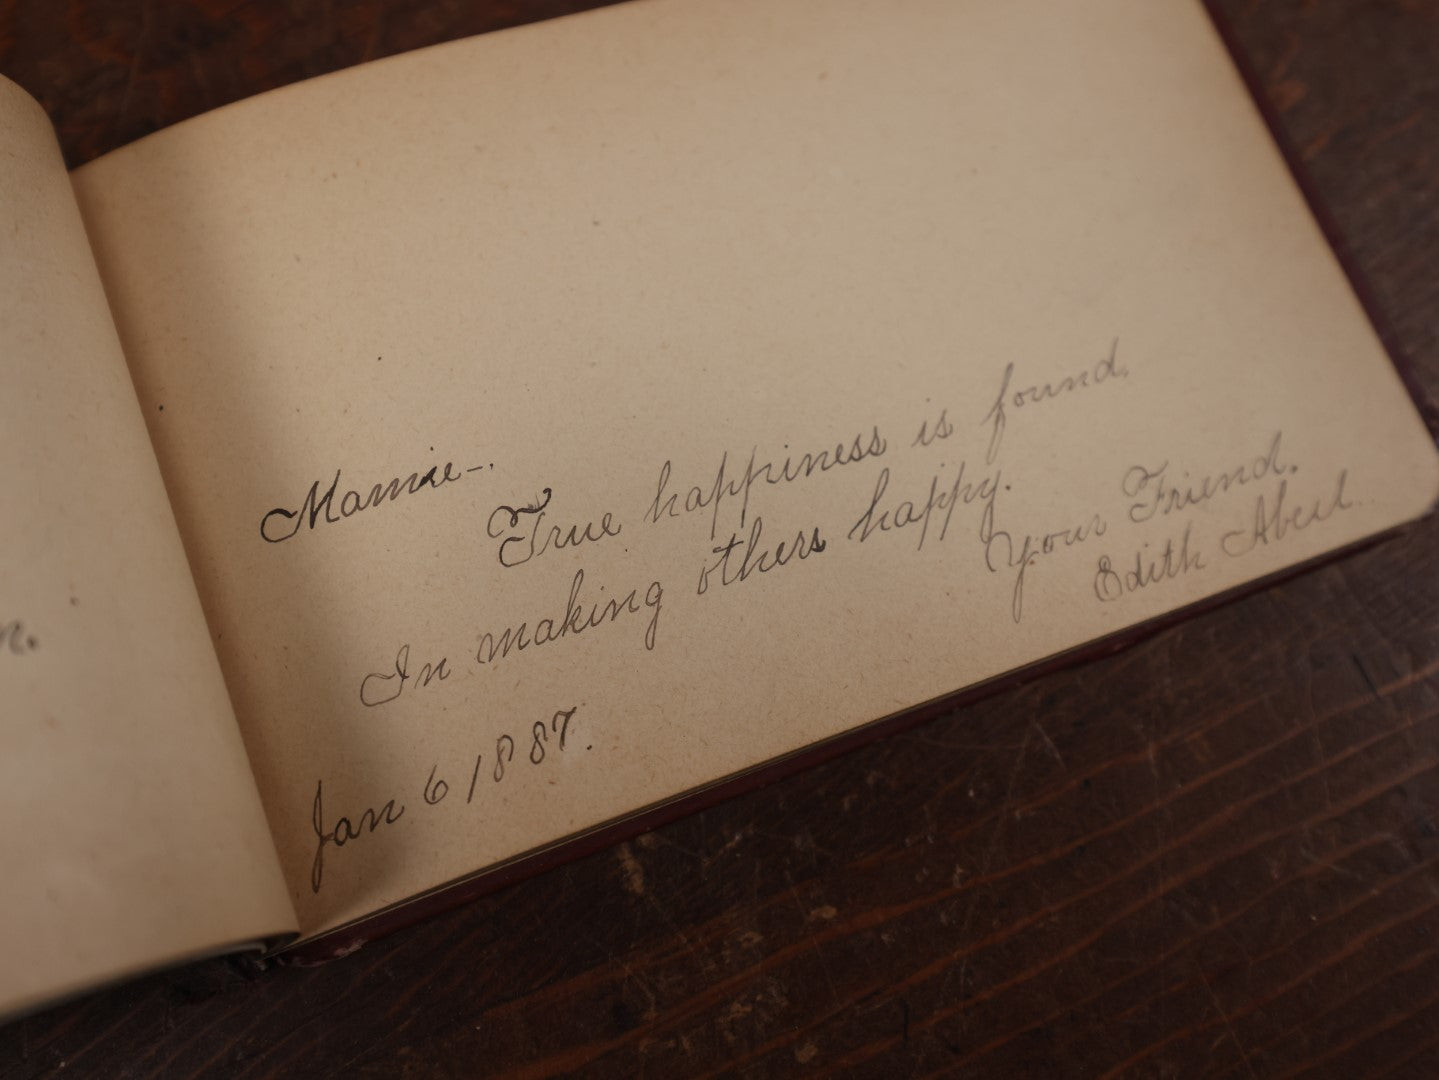 Mamie-.
True happiness is found.
In making others happy.
Your Friend.
Edith
Jan 6 1887.
n.